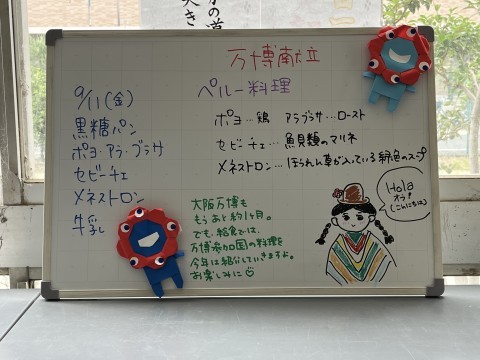 の道
咲き
万博献立
ペルー料理
9/11(金)
黒糖パン
ポヨ・アラ・ブラサ
セビーチェ
メネストロン
牛乳
ポヨ…鶏 アラブラサ…ロースト
セビーチェ…魚貝類のマリネ
メネストロン…ほうれん草が入っている緑色のスープ
大阪万博も
もうあと約1ヶ月。
でも、給食では、
万博参加国の料理を
今年は紹介していきますよ。
お楽しみに
Hola
オラ!
(こんにちは)